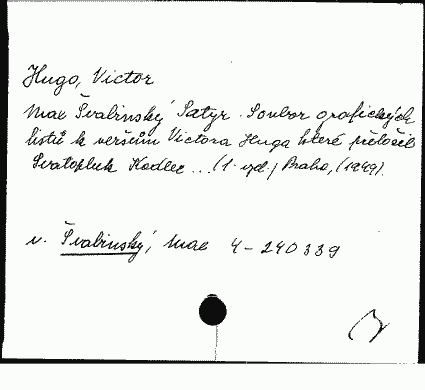 Hugo, Victor
Max Švabinský Satyr. Soubor grafických
listů k veršům Victora Huga které přeložil
Svatopluk Kadlec... (1. vyd.) Praha, (1949).
v. Švabinský, Max 4-240339